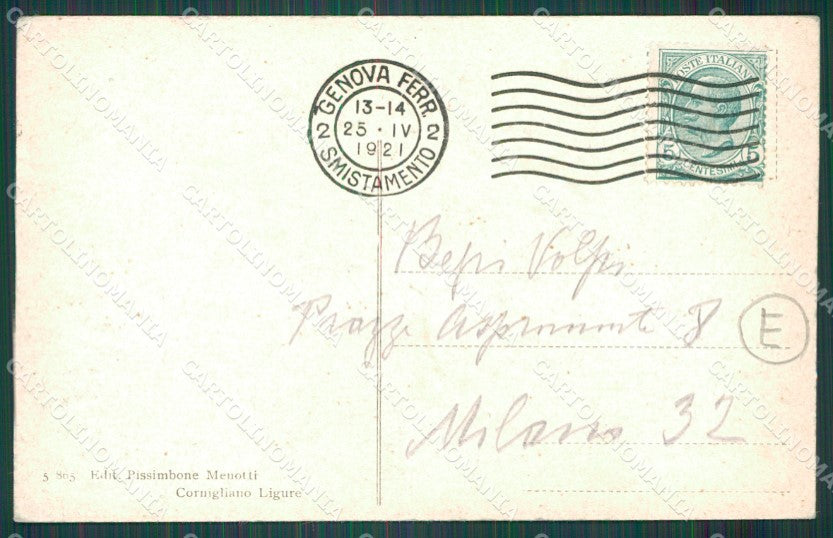 GENOVA FERR.
13-14
2 25 · IV 2
1921
SMISTAMENTO
POSTE ITALIANE
5 5
CENTESIMI
Bepi Volpi
Piazza Aspromonte 8
E
Milano 32
5 865 Edit. Pissimbone Menotti
Cornigliano Ligure
CARTOLINOMANIA